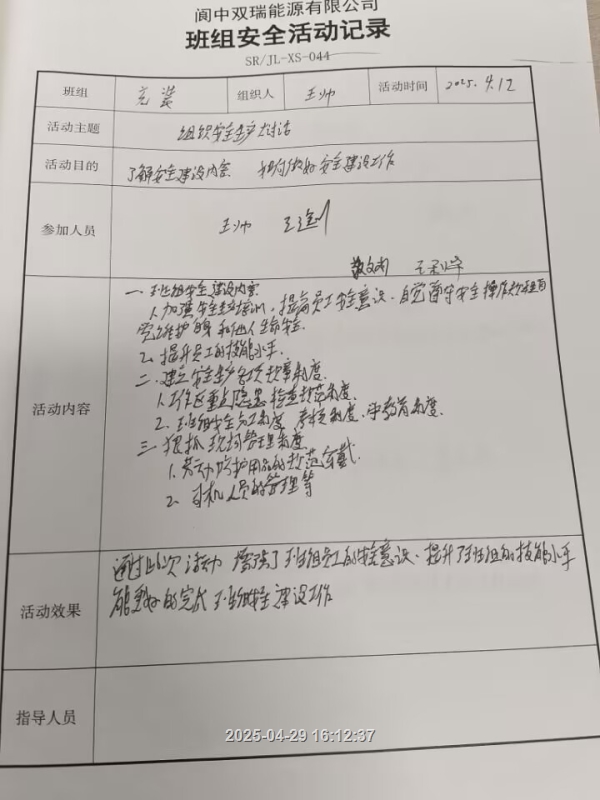 阆中双瑞能源有限公司
班组安全活动记录
SR/JL-XS-044
班组 充装 组织人 王帅 活动时间 2025.4.12
活动主题 组织安全生产大讲话
活动目的 了解安全建设内容 如何做好安全建设工作
参加人员 王帅
活动内容
一、班组安全建设内容
1.加强安全生产培训,提高员工安全意识,自觉遵守安全操作规程自
觉维护自身和他人生命安全.
2、提升员工的技能水平.
二、建立安全生产各项规章制度.
1.工作区重点隐患检查规范制度.
2、班组安全员工制度、考核制度、教育制度.
三、狠抓现场管理制度
1.劳动防护用品的规范穿戴.
2、司机人员的管理等
活动效果
通过此次活动 增强了班组员工的安全意识、提升了班组的技能水平
能更好的完成班组安全建设工作
指导人员
2025-04-29 16:12:37